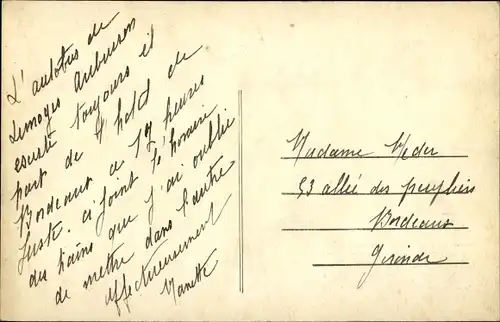 L'autobus de
Limoges Aubusson
existe toujours il
part de l'hotel de
Bordeaux a 17 heures
juste. ci joint l'horaire
des trains que j'ai oublié
de mettre dans l'autre
affectueusement
Nanette
Madame
53 allée des peupliers
Bordeaux
Gironde